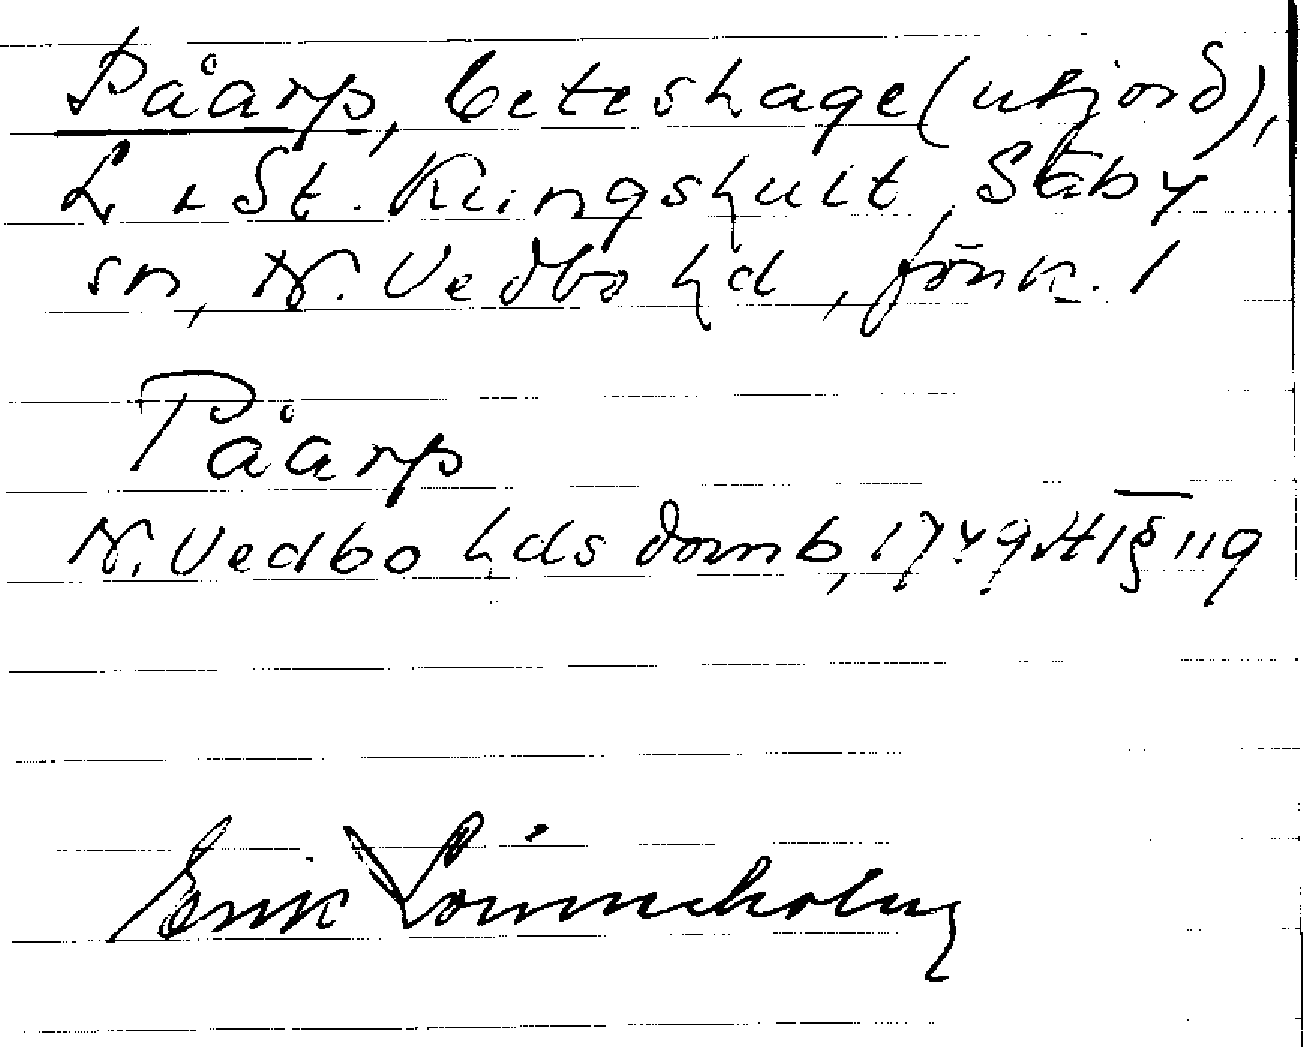 Påarp, beteshage (utjord),
L. o St. Klingshult, Säby
sn, N. Vedbo hd, Jönk. l
Påarp
N. Vedbo hds domb, 1749 Ht § 119
Erik Lönnholm